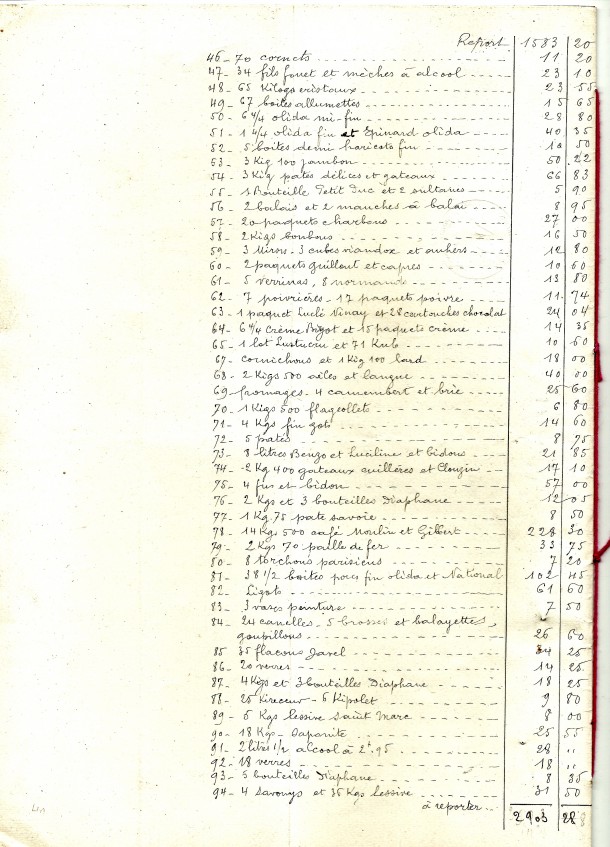 Report 1583 20
46 - 70 cornets 11 20
47 - 34 fils fouet et mèches à alcool 23 10
48 - 65 Kilogs cristaux 23 55
49 - 67 boites allumettes 15 65
50 - 6 4/4 olida mi-fin 28 80
51 - 1 4/4 olida fin et Epinard olida 40 35
52 - 5 boites demi haricots fin 10 50
53 - 3 Kig 100 jambon 50 22
54 - 3 Kig patés délices et gateaux 66 83
55 - 1 Bouteille Petit Duc et 2 sultanes 5 90
56 - 2 balais et 2 manches à balai 8 95
57 - 20 paquets charbons 27 00
58 - 2 Kigs bonbons 16 50
59 - 3 Mirois - 3 cubes viandox et 12 80
60 - 2 paquets Guillout et capres 10 60
61 - 5 verrines, 8 normands 13 80
62 - 7 poivrières - 17 paquets poivre 11 74
63 - 1 paquet Luclé Vinay et 28 cartouches chocolat 24 04
64 - 6 4/4 Crème Bigot et 15 paquets crème 14 35
65 - 1 lot Lustucru et 71 Kub 10 60
67 - cornichons et 1 Kig 100 lard 18 00
68 - 2 Kigs 500 ailes et langue 40 00
69 fromages - 4 camembert et brie 25 60
70 - 1 Kigs 500 flageollets 6 80
71 - 4 Kgs fin gots 14 60
72 - 5 patés 8 75
73 - 8 litres Benzo et Luciline et bidons 21 85
74 - 2 Kg 400 gateaux cuillères et Clouzin 17 10
75 - 4 fus et bidon 57 00
76 - 2 Kgs et 3 bouteilles Diaphane 12 05
77 - 1 Kg 75 pate savoie 8 50
78 - 14 Kgs 500 café Moulin et Gilbert 228 30
79 - 2 Kgs 70 paille de fer 33 75
80 - 8 torchons parisiens 7 20
81 - 38 1/2 boites pois fin olida et National 102 45
82 - Ligots 61 60
83 - 3 vases peinture 7 50
84 - 24 canelles - 5 brosses et balayettes,
goupillons 26 60
85 35 flacons Javel 84 25
86 - 20 verres 14 25
87 - 4 Kgs et 3 bouteilles Diaphane 18 25
88 - 25 Kireceur - 6 Kipolet 9 80
89 - 6 Kgs lessive Saint Marc 8 00
90 - 18 Kgs - Saponite 25 55
91 - 2 litres 1/2 alcool à 2f.95 28 "
92 - 18 verres 18 "
93 - 5 bouteilles Diaphane 8 35
94 - 4 Savonys et 35 Kgs lessive 31 50
à reporter 2903 28